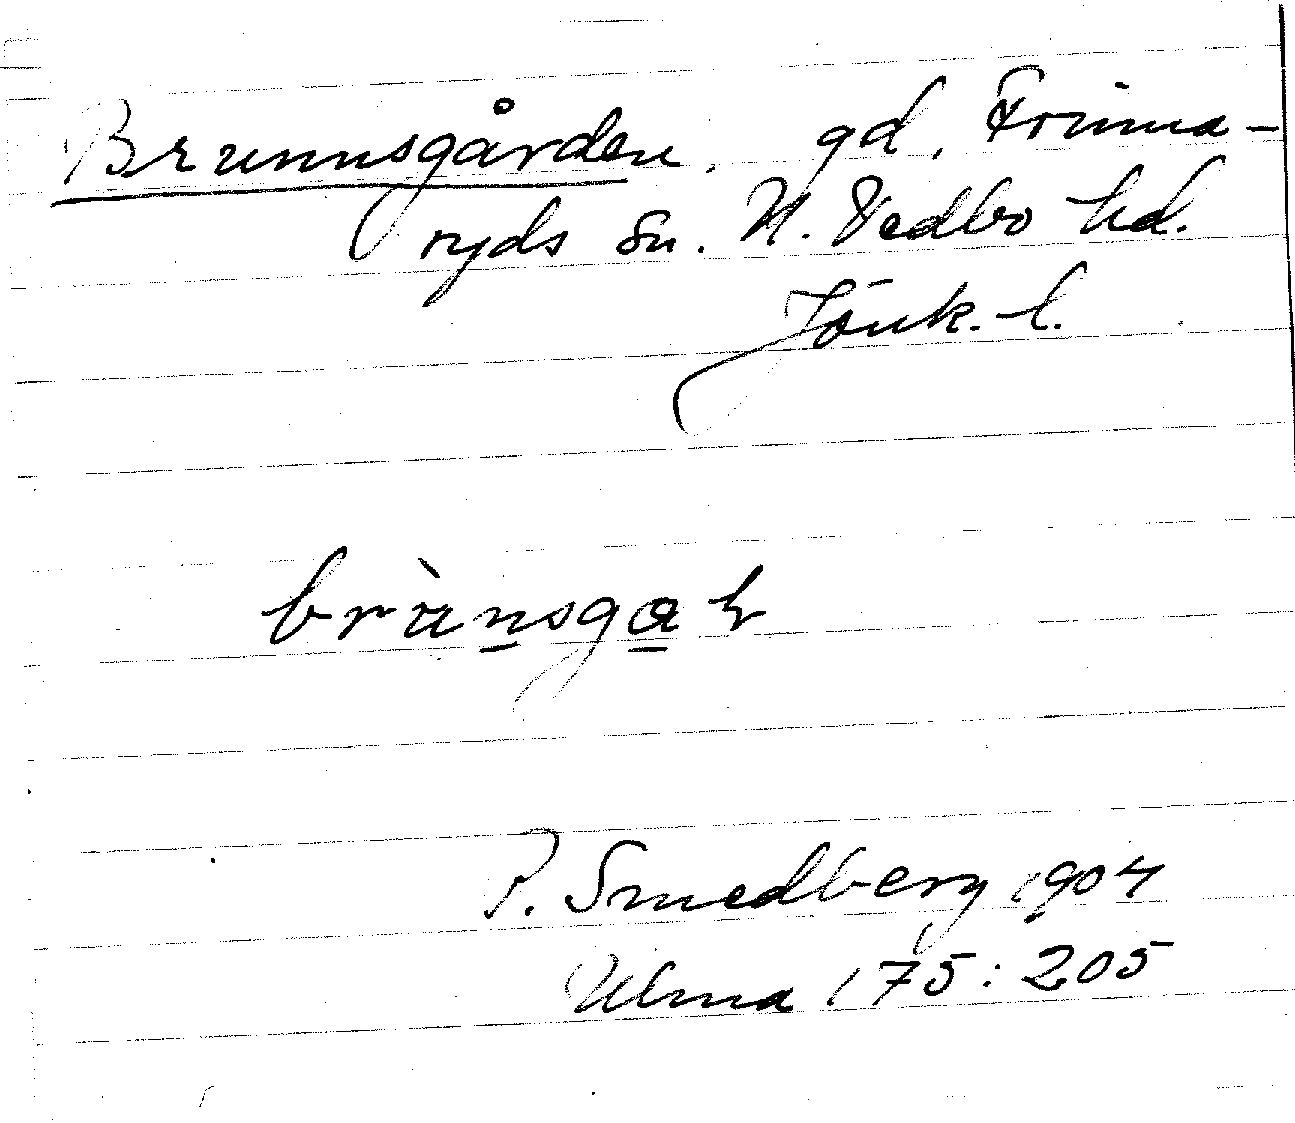 Brunnsgården, gd, Frinna-
ryds sn. N. Vedbo hd.
Jönk. l.
P. Smedberg 1904
Ulma 175:205